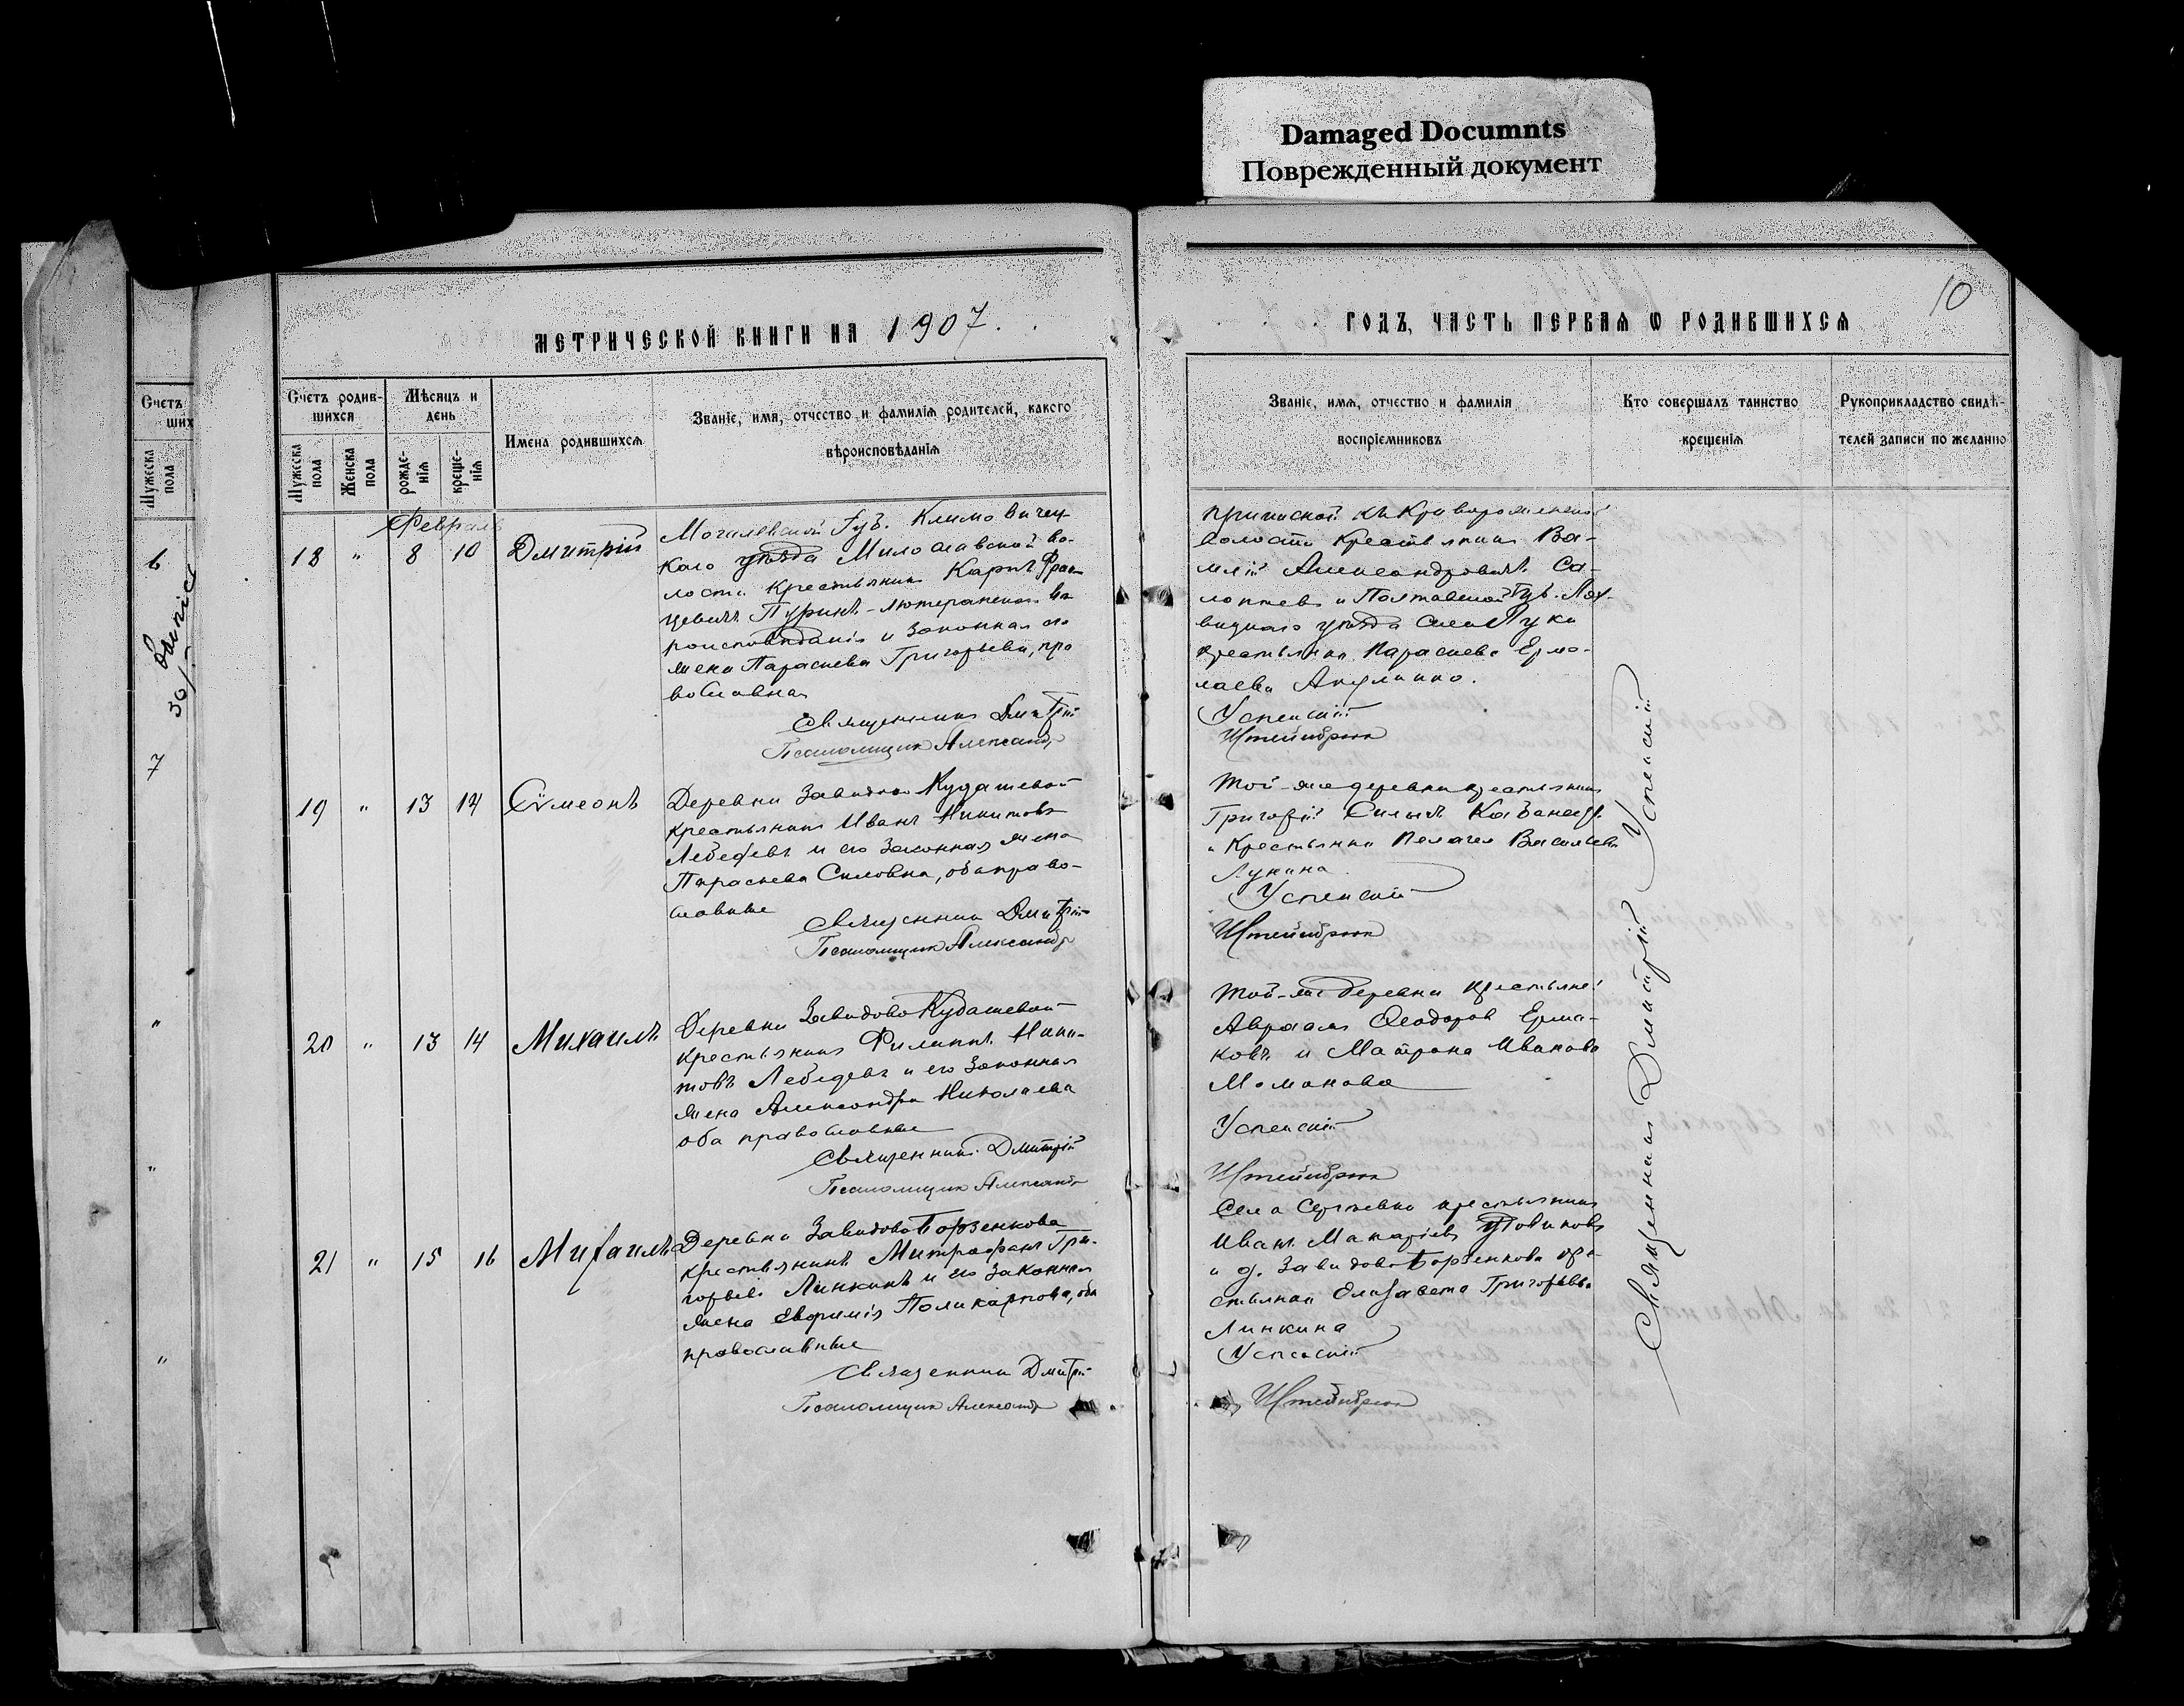 Damaged Documnts
Поврежденный документ
10
МЕТРИЧЕСКОЙ КНИГИ НА 1907.
ГОДЪ, ЧАСТЬ ПЕРВАЯ Ѡ РОДИВШИХСЯ
Счетъ
ших
Мужеска пола
6
7
Счетъ родив-
шихся
Мѣсяцъ и
день
Мужеска пола
Женска пола
рожде-
нія
креще-
нія
Имена родившихся
Званіе, имя, отчество и фамилія родителей, какого
вѣроисповѣданія
Званіе, имя, отчество и фамилія
воспріемниковъ
Кто совершалъ таинство
крещенія
Рукоприкладство свидѣ-
телей записи по желанію
Февраль
18 " 8 10 Дмитрій
Могилевской Губ. Климовичец-
каго уѣзда Милославской во-
лости крестьянинъ Карпъ Фран-
цевичъ Пуринъ-лютеранскаго вѣ-
роисповѣданія и законная его
жена Параскева Григорьева, пра
вославная
Священникъ Дмитрій
Псаломщикъ Александр
волости крестьянинъ Ва-
Александровичъ Са-
и Полтавской Губ. Лох-
вицкаго уѣзда села Луки
крестьянка Параскева Ермо-
лаева
Успенскій
Штейнбрюк
19 " 13 14 Сѵмеонъ
Деревни Завидово Кудашевой
крестьянинъ Иванъ Никитовъ
Лебедевъ и его законная жена
Параскева Силовна, оба право-
славные
Священникъ Дмитрій
Псаломщикъ Александр
Той-же деревни крестьянинъ
Григорій Силычъ
и крестьянка Пелагея Васильева
Лунина
Успенскій
Штейнбрюк
20 " 13 14 Михаилъ
Деревни Завидово Кудашевой
крестьянинъ Филиппъ Ники-
товъ Лебедевъ и его законная
жена Александра Николаева
оба православные
Священникъ Дмитрій
Псаломщикъ Александр
Той-же деревни крестьяне:
Авраамъ Ѳеодоровъ Ерма-
ковъ и Матрона Иванова
Момонова
Успенскій
Штейнбрюк
21 " 15 16 Михаилъ
Деревни Завидово Борзенкова
крестьянинъ Митрофанъ Гри-
горьевъ Линкинъ и его законная
жена Евфимія Поликарпова, оба
православные
Священникъ Дмитрій
Псаломщикъ Александр
Села Сергіевки крестьянинъ
Иванъ Макаріевъ
и д. Завидово Борзенкова кре-
стьянка Елизавета Григорьева
Линкина
Успенскій
Штейнбрюк
Священникъ Дмитрій Успенскій